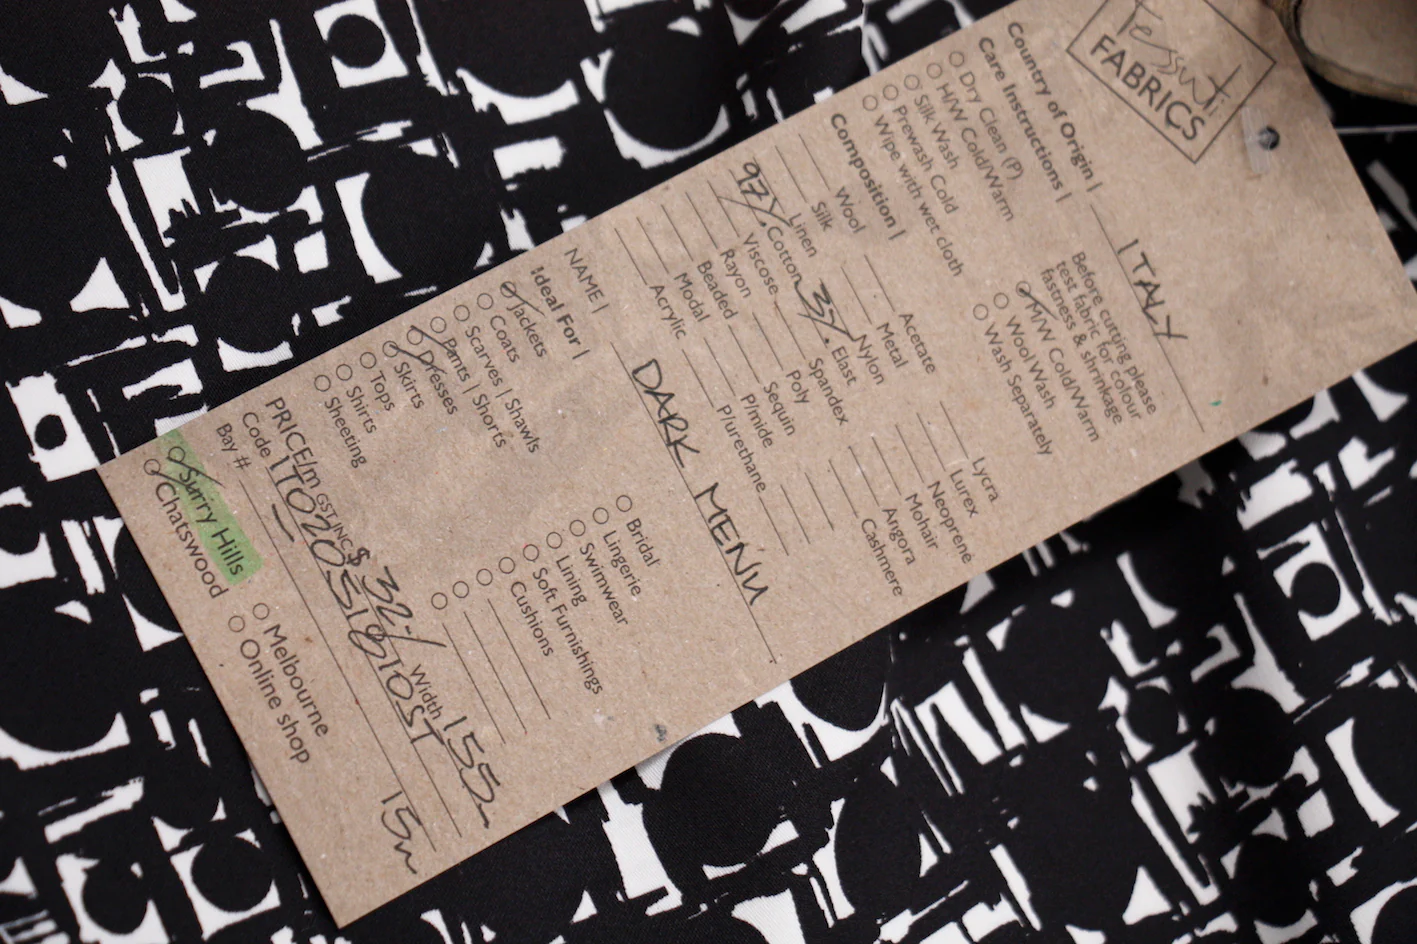 Tessuti
FABRICS
Country of Origin | ITALY
Care Instructions |
Before cutting please
test fabric for colour
fastness & shrinkage
Dry Clean (P)
H/W Cold/Warm
Silk Wash
Prewash Cold
Wipe with wet cloth
M/W Cold/Warm
Wool Wash
Wash Separately
Composition |
Wool
Silk
Linen
97% Cotton
Viscose
Rayon
Beaded
Modal
Acrylic
Acetate
Metal
Nylon
3% Elast
Spandex
Poly
Sequin
P/mide
P/urethane
Lycra
Lurex
Neoprene
Mohair
Angora
Cashmere
NAME | DARK MENU
Ideal For |
Jackets
Coats
Scarves | Shawls
Pants | Shorts
Dresses
Skirts
Tops
Shirts
Sheeting
Bridal
Lingerie
Swimwear
Lining
Soft Furnishings
Cushions
PRICE/m GST INC $ 32.-/ Width 155
Code
Bay # 15m
Surry Hills
Chatswood
Melbourne
Online shop